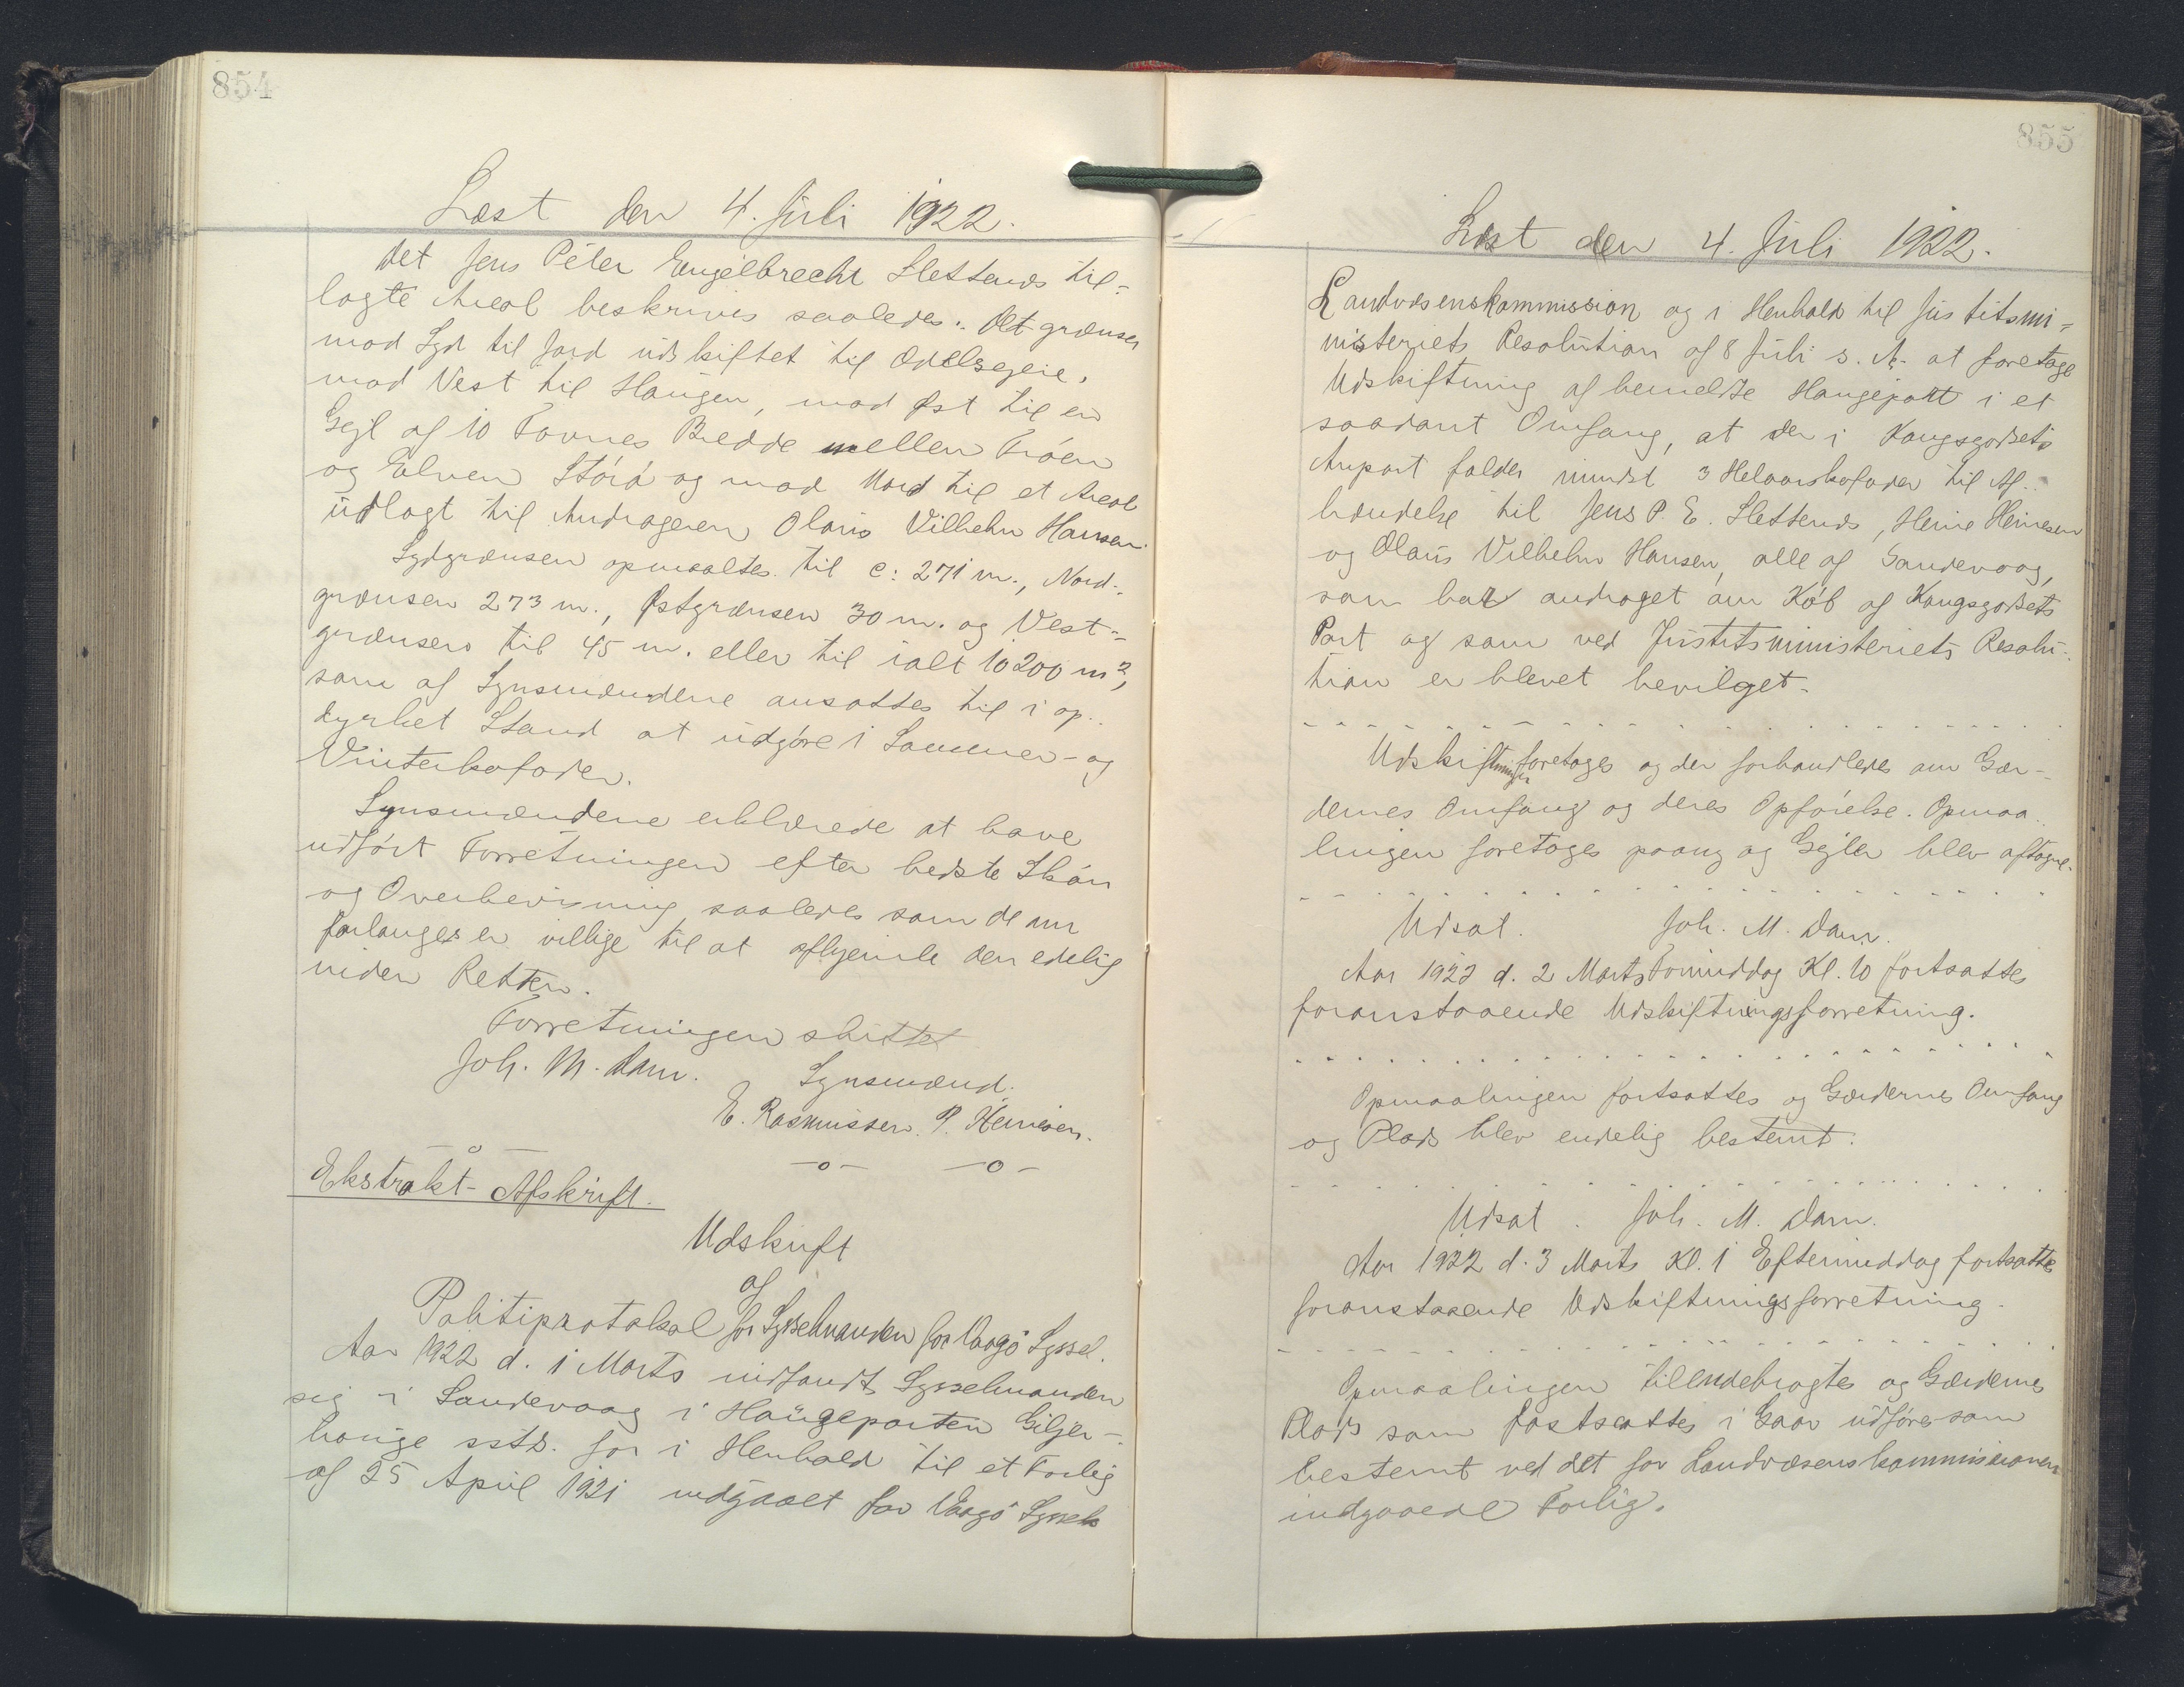 854
Læst den 4. Juli 1922.
det Jens Peter Engelbrecht Slettenes til-
lagte Areal beskrives saaledes: Det grænser
mod Syd til Jord udskiftet til Odelsejeie,
mod Vest til Haugen, mod Øst til en
Gejl af 10 Favnes Bredde mellem Tróen
og Elven Stórá og mod Nord til et Areal
udlagt til Andrageren Olaus Vilhelm Hansen.
Sydgrænsen opmaaltes til c: 271 m., Nord-
grænsen 273 m., Østgrænsen 30 m. og Vest-
grænsen til 45 m. eller til ialt 10200 m²,
som af Synsmændene ansattes til i op-
dyrket Stand at udgöre 1 Sommer- og
Vinterkofoder.
Synsmændene erklærede at have
udfört Forretningen efter bedste Skön
og Overbevisning saaledes som de om
forlanges er villige til at afhjemle den edelig
inden Retten.
Forretningen sluttet
Joh. M. Dam. Synsmænd.
E. Rasmussen. P. Heinesen.
—o— —o— —o—
Ekstrakt-Afskrift.
Udskrift
af
Politiprotokol for Sysselmanden for Vaagö Syssel.
Aar 1922 d. 1 Marts indfandt Sysselmanden
sig i Sandevaag i Haugeparten Giljer-
hauge sstds. for i Henhold til et Forlig
af 25 April 1921 indgaaet for Vaagö Syssels
855
Læst den 4. Juli 1922.
Landvæsenskommission og i Henhold til Justitsmi-
nisteriets Resolution af 8 Juli s. A. at foretage
Udskiftning af bemeldte Haugepart i et
saadant Omfang, at der i Kongsgodsets
Anpart falder mindst 3 Helaarskofoder til Af-
hændelse til Jens P. E. Slettenes, Heine Heinesen
og Olaus Vilhelm Hansen, alle af Sandevaag,
som har andraget om Köb af Kongsgodsets
Part og som ved Justitsministeriets Resolu-
tion er blevet bevilget.
Udskiftningen foretages og der forhandledes om Gær-
dernes Omfang og deres Opförelse. Opmaa-
lingen foretages paany og Gejler blev aftagne.
Udsat. Joh. M. Dam.
Aar 1922 d. 2 Marts Formiddag Kl. 10 fortsattes
foranstaaende Udskiftningsforretning.
Opmaalingen fortsattes og Gærdernes Omfang
og Plads blev endelig bestemt.
Udsat. Joh. M. Dam.
Aar 1922 d. 3 Marts Kl. 1 Eftermiddag fortsattes
foranstaaende Udskiftningsforretning.
Opmaalingen tilendebragtes og Gærdernes
Plads som fastsattes i Gaar udföres som
bestemt ved det for Landvæsenskommissionen
indgaaede Forlig.